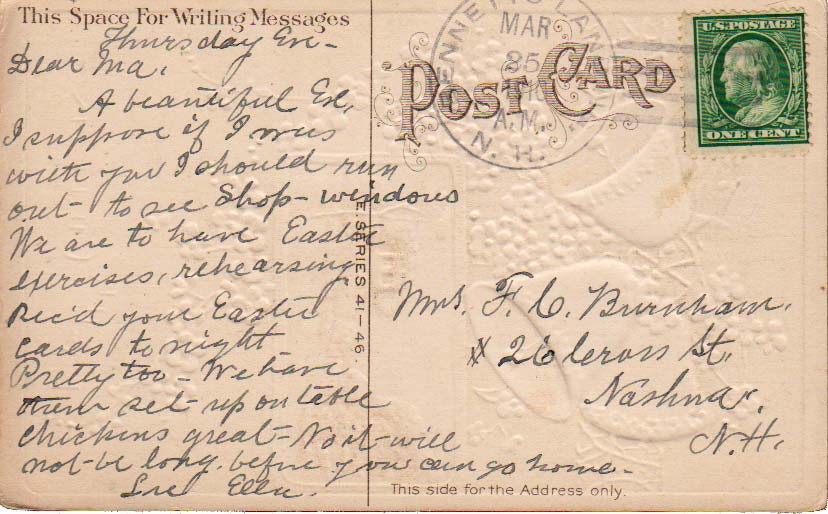 This Space For Writing Messages
Thursday Eve-
Dear Ma,
A beautiful Eve,
I suppose if I was
with you I should run
out- to see Shop-windows
We are to have Easter
exercises, rehearsing
Rec'd your Easter
cards to night
Pretty too - We have
them set-up on table
chickens great- No it-will
not-be long before you can go home-
Ella.
E. SERIES 41-46.
POST CARD
MAR
25
A.M.
N. H.
U.S. POSTAGE
ONE CENT
Mrs. F. C. Burnham,
# 26 Cross St,
Nashua,
N.H.
This side for the Address only.